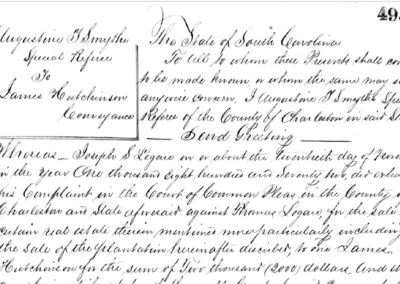 49
Augustine T Smythe
Special Referee
To
James Hutchinson
Conveyance
The State of South Carolina
To All to whom these Presents shall co
to be made known or whom the same may
anywise concern, I Augustine T Smythe Spe
Referee of the County of Charleston in said St
Send Greeting
Whereas Joseph S Legare on or about the Twentieth day of
in the Year One thousand Eight hundred and Seventy two, did
his Complaint in the Court of Common Pleas, in the County
Charleston and State aforesaid against Thomas Legare, for the sale
certain real estate therein mentioned more particularly including
the sale of the Plantation hereinafter described, to one James
Hutchinson for the sum of Two thousand (2000) dollars. And